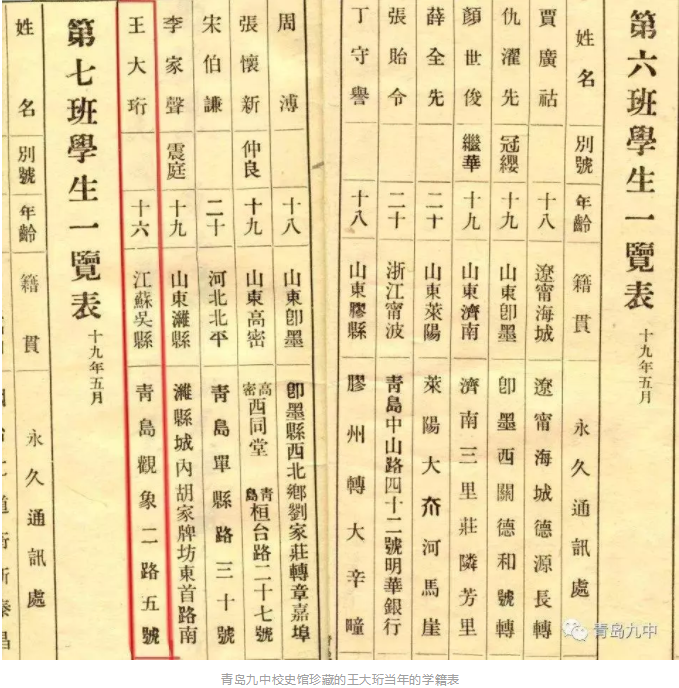 第六班學生一覽表 十九年五月
姓名 別號 年齡 籍貫 永久通訊處
賈廣祜 十八 遼甯海城 遼甯海城德源長轉
仇濯先 冠纓 十九 山東卽墨 卽墨西關德和號轉
顏世俊 繼華 十九 山東濟南 濟南三里莊隣芳里
薛全先 二十 山東萊陽 萊陽大夼河馬崖
張貽令 二十 浙江甯波 青島中山路四十二號明華銀行
丁守譽 十八 山東膠縣 膠州轉大辛疃
周溥 十八 山東卽墨 卽墨縣西北鄉劉家莊轉章嘉埠
張懷新 仲良 十九 山東高密 高密西同堂 青島桓台路二十七號
宋伯謙 二十 河北北平 青島單縣路三十號
李家聲 震庭 十九 山東濰縣 濰縣城內胡家牌坊東首路南
王大珩 十六 江蘇吳縣 青島觀象二路五號
第七班學生一覽表 十九年五月
姓名 別號 年齡 籍貫 永久通訊處
青岛九中
青岛九中校史馆珍藏的王大珩当年的学籍表